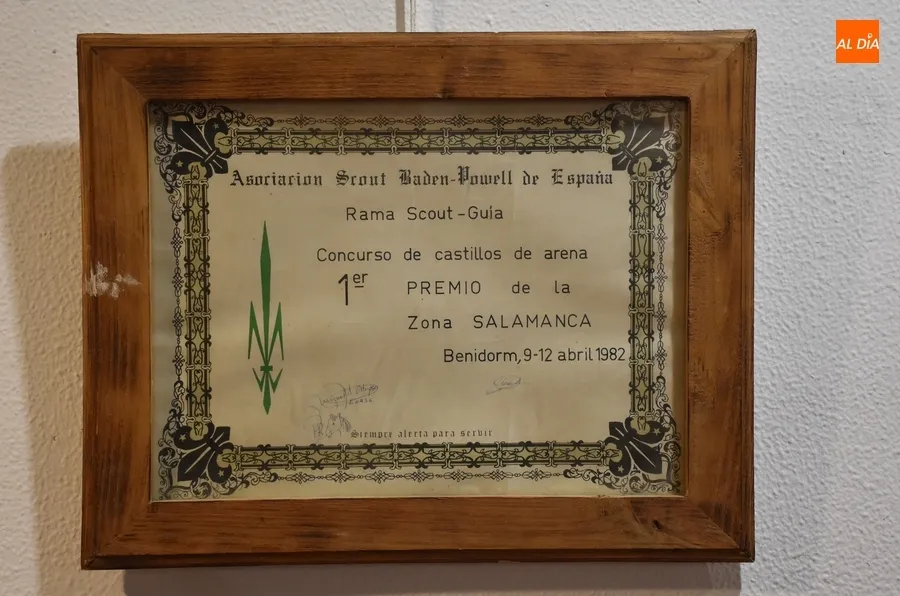 AL DÍA
Asociacion Scout Baden-Powell de España
Rama Scout-Guía
Concurso de castillos de arena
1er PREMIO de la
Zona SALAMANCA
Benidorm, 9-12 abril 1982
Siempre alerta para servir